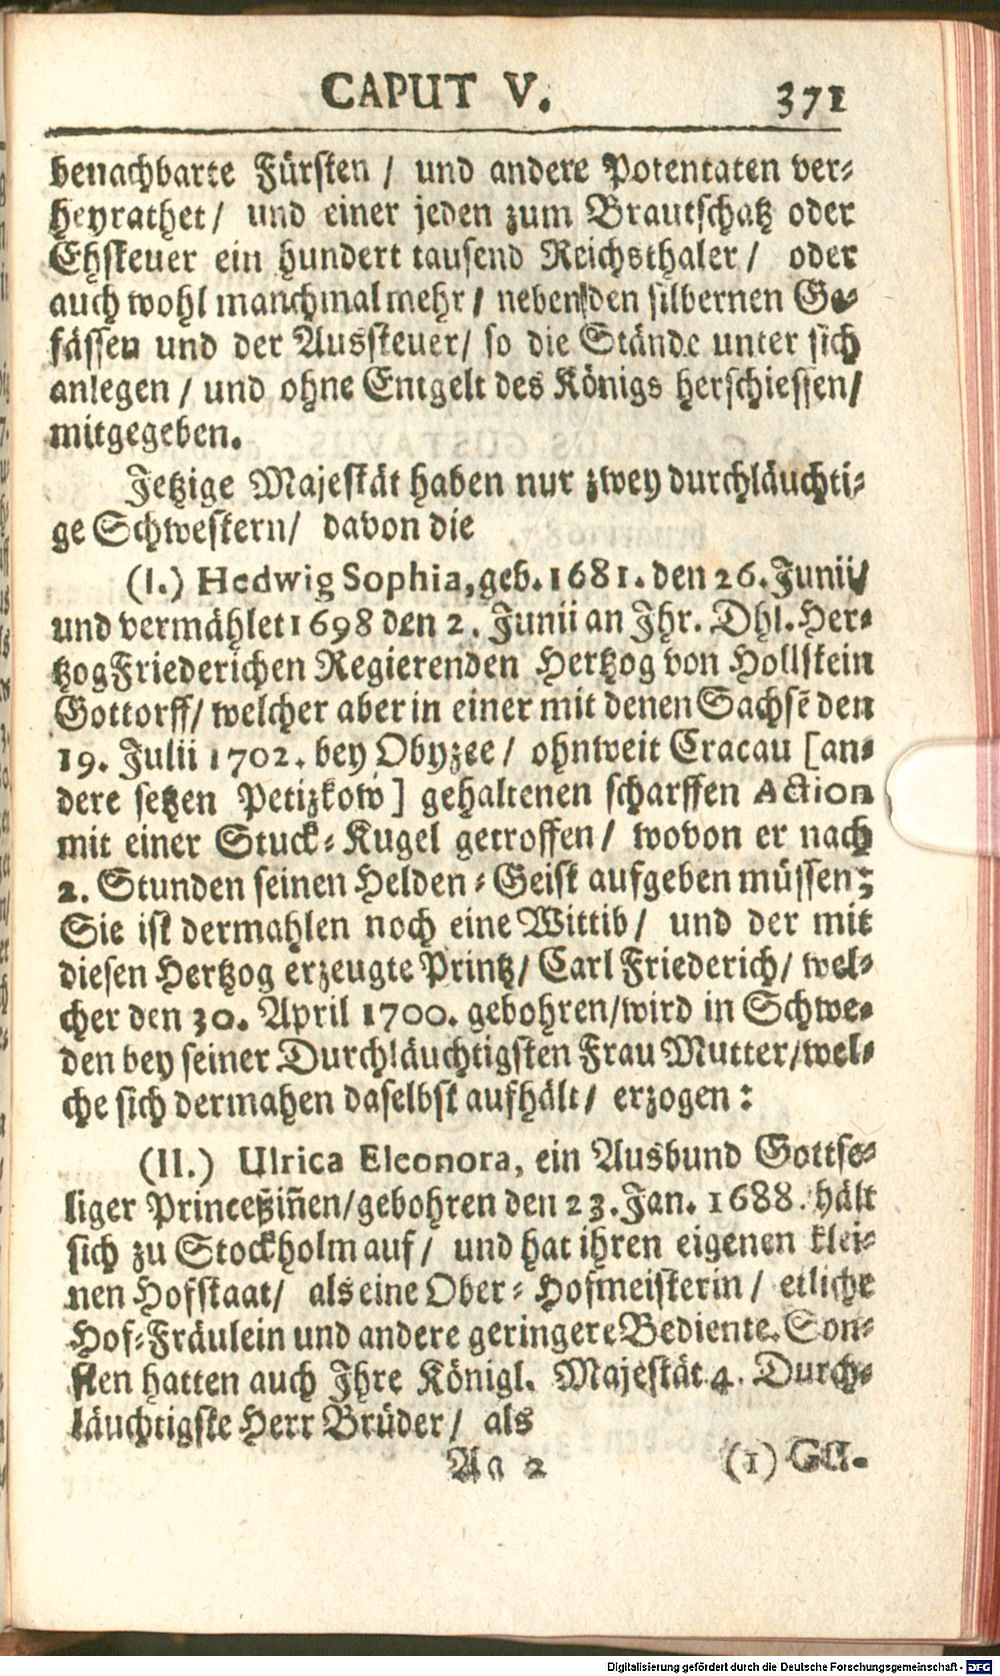 CAPUT V. 371
benachbarte Fürsten / und andere Potentaten ver-
heyrathet / und einer jeden zum Brautschatz oder
Ehsteuer ein hundert tausend Reichsthaler / oder
auch wohl manchmal mehr / neben den silbernen Ge-
fässen und der Aussteuer / so die Stände unter sich
anlegen / und ohne Entgelt des Königs herschiessen /
mitgegeben.
Jetzige Majestät haben nur zwey durchläuchti-
ge Schwestern / davon die
(I.) Hedwig Sophia, geb. 1681. den 26. Junii /
und vermählet 1698 den 2. Junii an Ihr. Dhl. Her-
tzog Friederichen Regierenden Hertzog von Hollstein
Gottorff / welcher aber in einer mit denen Sachsē den
19. Julii 1702. bey Obyzee / ohnweit Cracau [an-
dere setzen Petizkow] gehaltenen scharffen Action
mit einer Stuck-Kugel getroffen / wovon er nach
2. Stunden seinen Helden-Geist aufgeben müssen;
Sie ist dermahlen noch eine Wittib / und der mit
diesen Hertzog erzeugte Printz / Carl Friederich / wel-
cher den 30. April 1700. gebohren / wird in Schwe-
den bey seiner Durchläuchtigsten Frau Mutter / wel-
che sich dermahen daselbst aufhält / erzogen:
(II.) Ulrica Eleonora, ein Ausbund Gottse-
liger Princeßin̄en / gebohren den 23. Jan. 1688. hält
sich zu Stockholm auf / und hat ihren eigenen klei-
nen Hofstaat / als eine Ober-Hofmeisterin / etliche
Hof-Fräulein und andere geringere Bediente. Son-
sten hatten auch Ihre Königl. Majestät 4. Durch-
läuchtigste Herr Brüder / als
Aa 2 (1) GU.
Digitalisierung gefördert durch die Deutsche Forschungsgemeinschaft - DFG